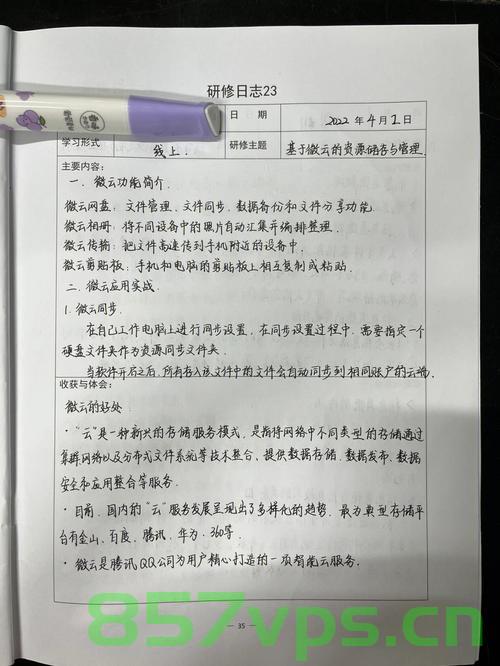 研修日志23
日 期 2022年4月1日
学习形式 线上. 研修主题 基于微云的资源储存与管理.
主要内容:
一. 微云功能简介.
微云网盘: 文件管理, 文件同步, 数据备份和文件分享功能.
微云相册: 将不同设备中的照片自动汇集并编排整理.
微云传输: 把文件高速传到手机附近的设备中.
微云剪贴板: 手机和电脑的剪贴板上相互复制或粘贴.
二. 微云应用实战.
1. 微云同步.
在自己工作电脑上进行同步设置, 在同步设置过程中, 需要指定一个
硬盘文件夹作为资源同步文件夹.
当软件开启之后, 所有存入该文件中的文件会自动同步到相同账户的云端.
收获与体会:
微云的好处
· “云”是一种新兴的存储服务模式, 是指将网络中不同类型的存储通过
集群网络以及分布式文件系统等技术整合, 提供数据存储, 数据发布, 数据
安全和应用整合等服务.
· 目前, 国内的“云”服务发展呈现出了多样化的趋势, 最为典型存储平
台有金山, 百度, 腾讯, 华为, 360等.
· 微云是腾讯QQ公司为用户精心打造的一项智能云服务.
— 35 —
857vps.cn